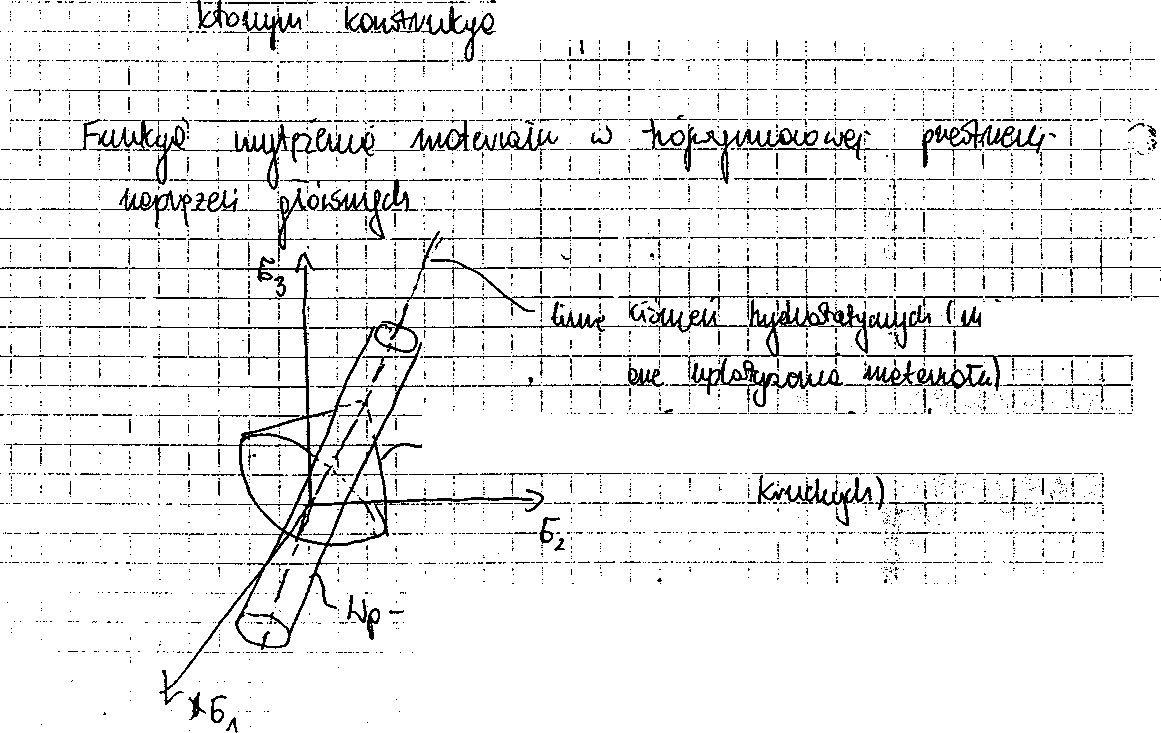 którym konstrukcja
Funkcja wytężenia materiału w trójwymiarowej przestrzeni
naprężeń głównych
σ3
linia ciśnień hydrostatycznych (ni
one uplastyczniają materiału)
kruchych)
σ2
Wp -
σ1